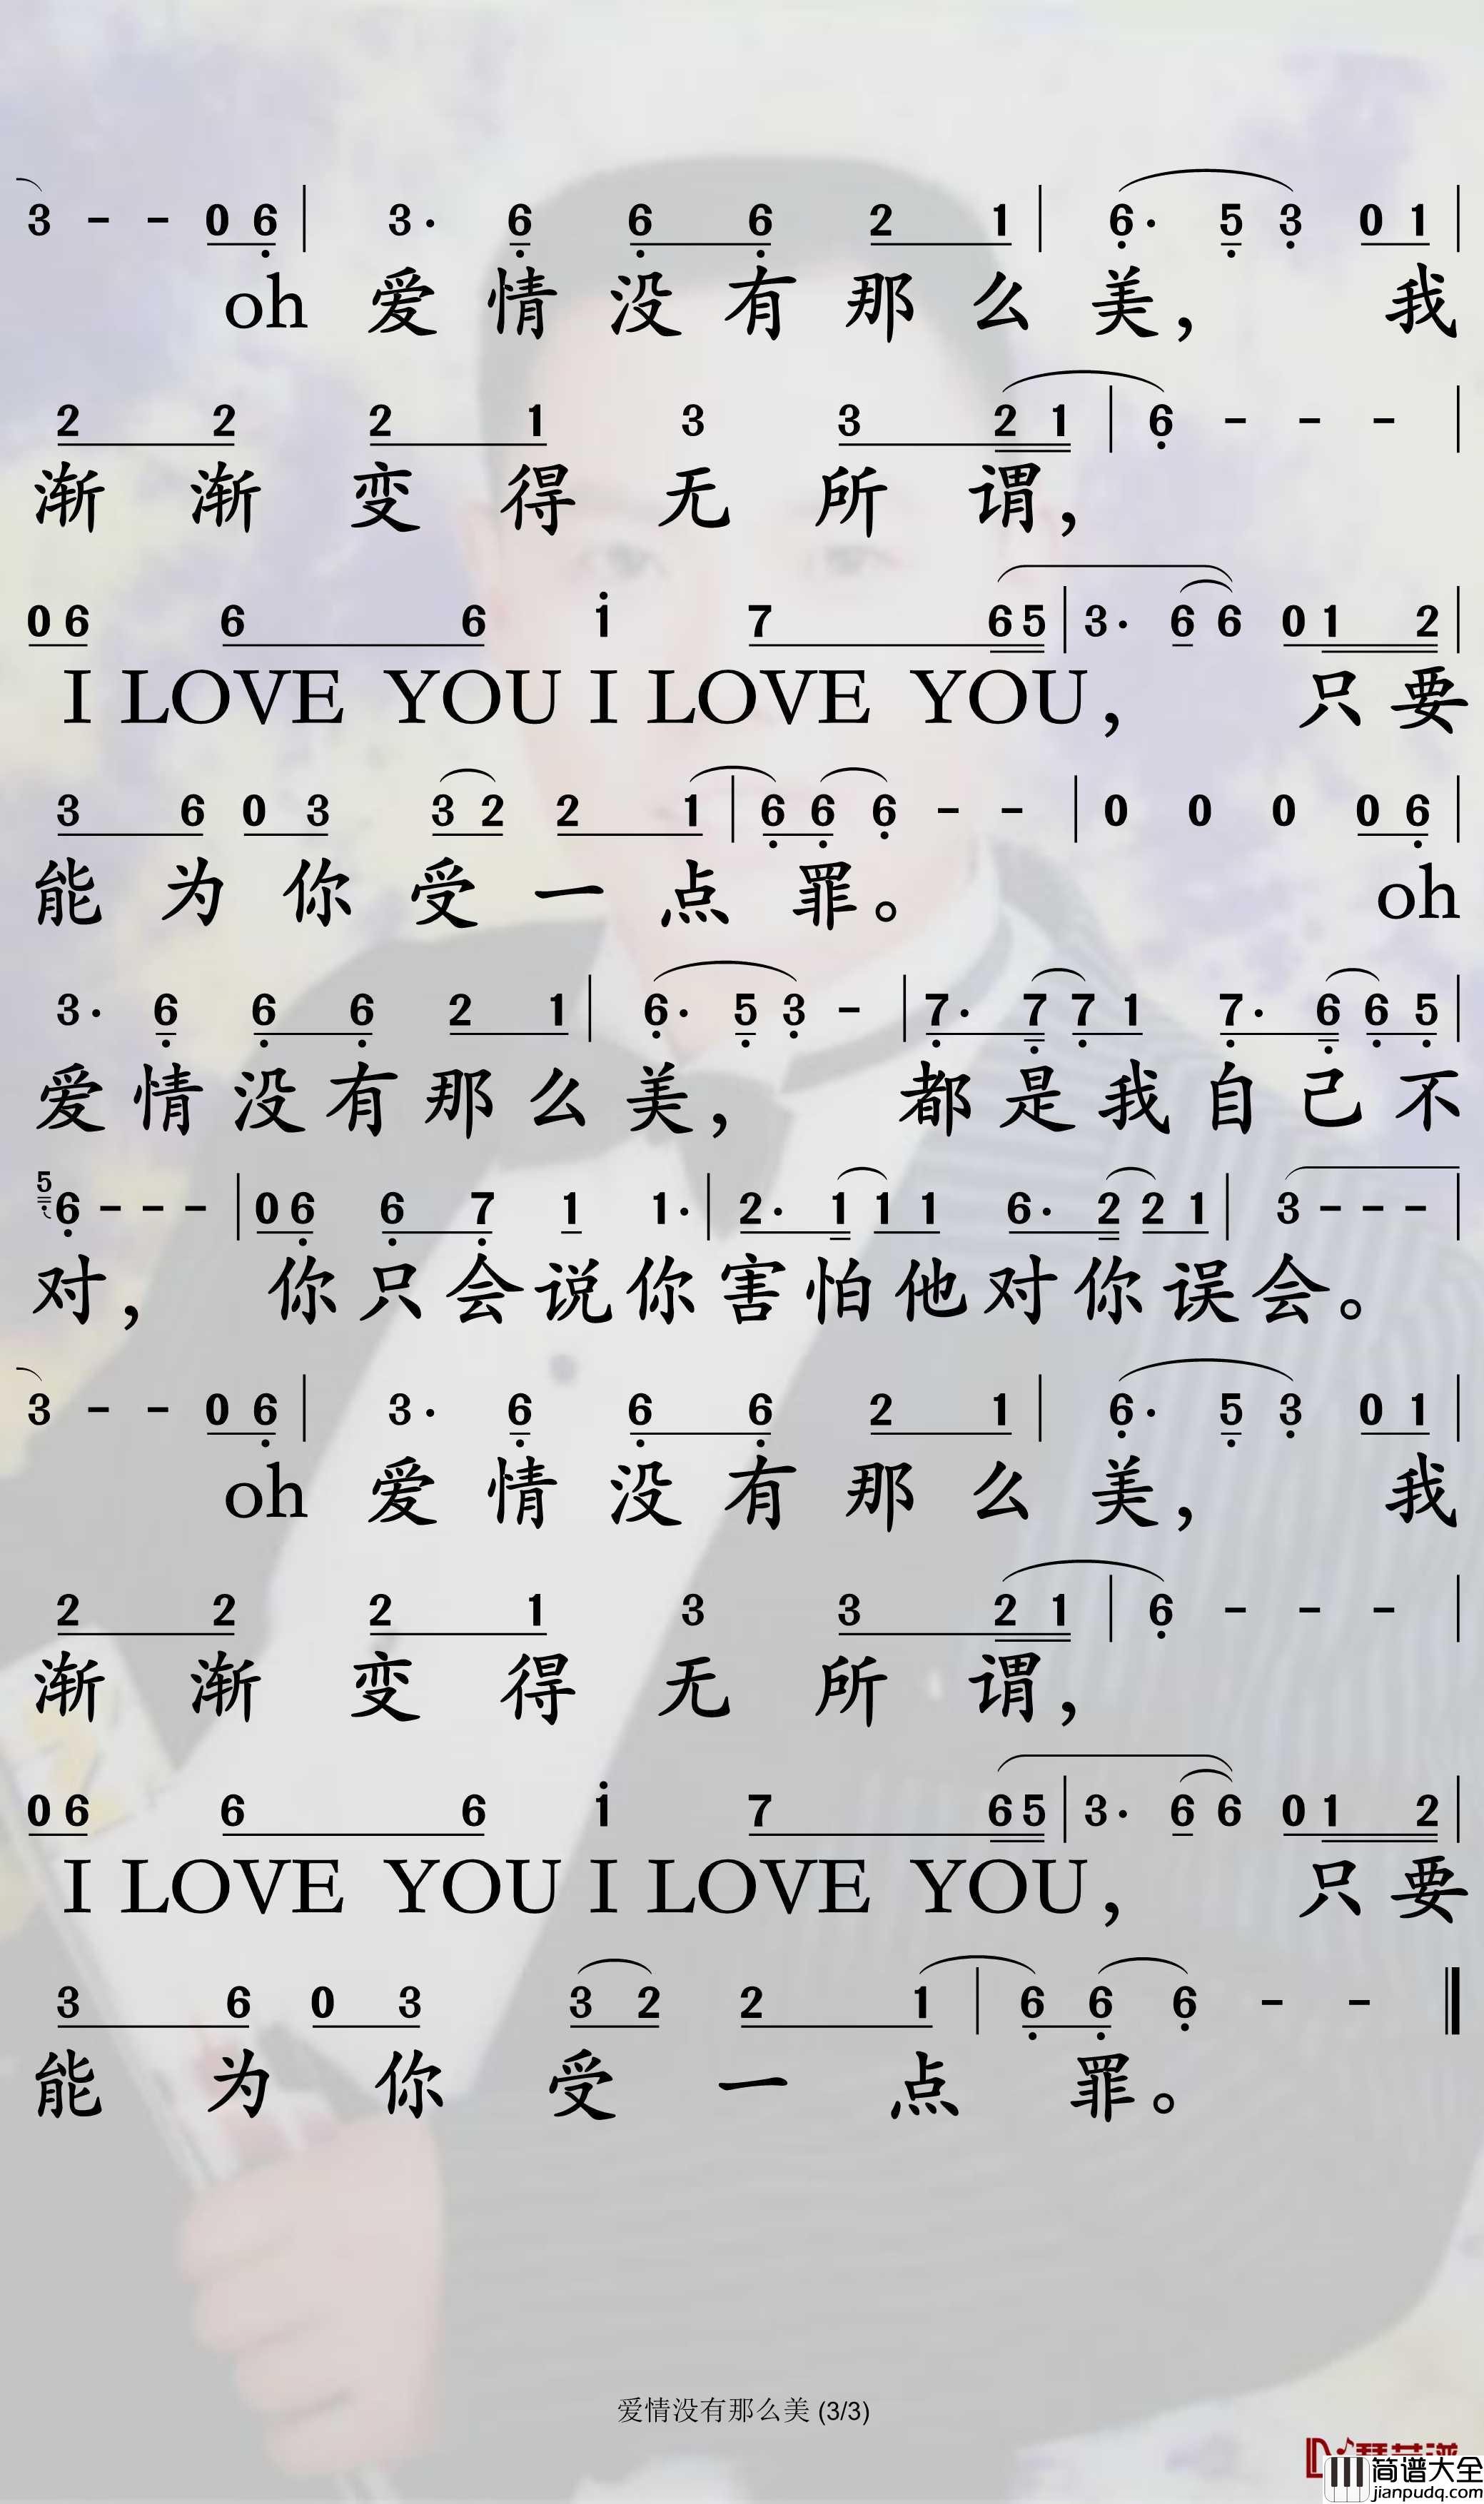 3 - - 0 6 | 3· 6 6 6 2 1 | 6· 5 3 0 1 |
oh 爱 情 没 有 那 么 美， 我
2 2 2 1 3 3 2 1 | 6 - - - |
渐 渐 变 得 无 所 谓，
0 6 6 6 1 7 6 5 | 3· 6 6 0 1 2 |
I LOVE YOU I LOVE YOU， 只 要
3 6 0 3 3 2 2 1 | 6 6 6 - - | 0 0 0 0 6 |
能 为 你 受 一 点 罪。 oh
3· 6 6 6 2 1 | 6· 5 3 - | 7· 7 7 1 7· 6 6 5 |
爱 情 没 有 那 么 美， 都 是 我 自 己 不
5 6 - - - | 0 6 6 7 1 1· | 2· 1 1 1 6· 2 2 1 | 3 - - - |
对， 你 只 会 说 你 害 怕 他 对 你 误 会。
3 - - 0 6 | 3· 6 6 6 2 1 | 6· 5 3 0 1 |
oh 爱 情 没 有 那 么 美， 我
2 2 2 1 3 3 2 1 | 6 - - - |
渐 渐 变 得 无 所 谓，
0 6 6 6 1 7 6 5 | 3· 6 6 0 1 2 |
I LOVE YOU I LOVE YOU， 只 要
3 6 0 3 3 2 2 1 | 6 6 6 - - ‖
能 为 你 受 一 点 罪。
爱情没有那么美 (3/3)
简谱大全
jianpudq.com